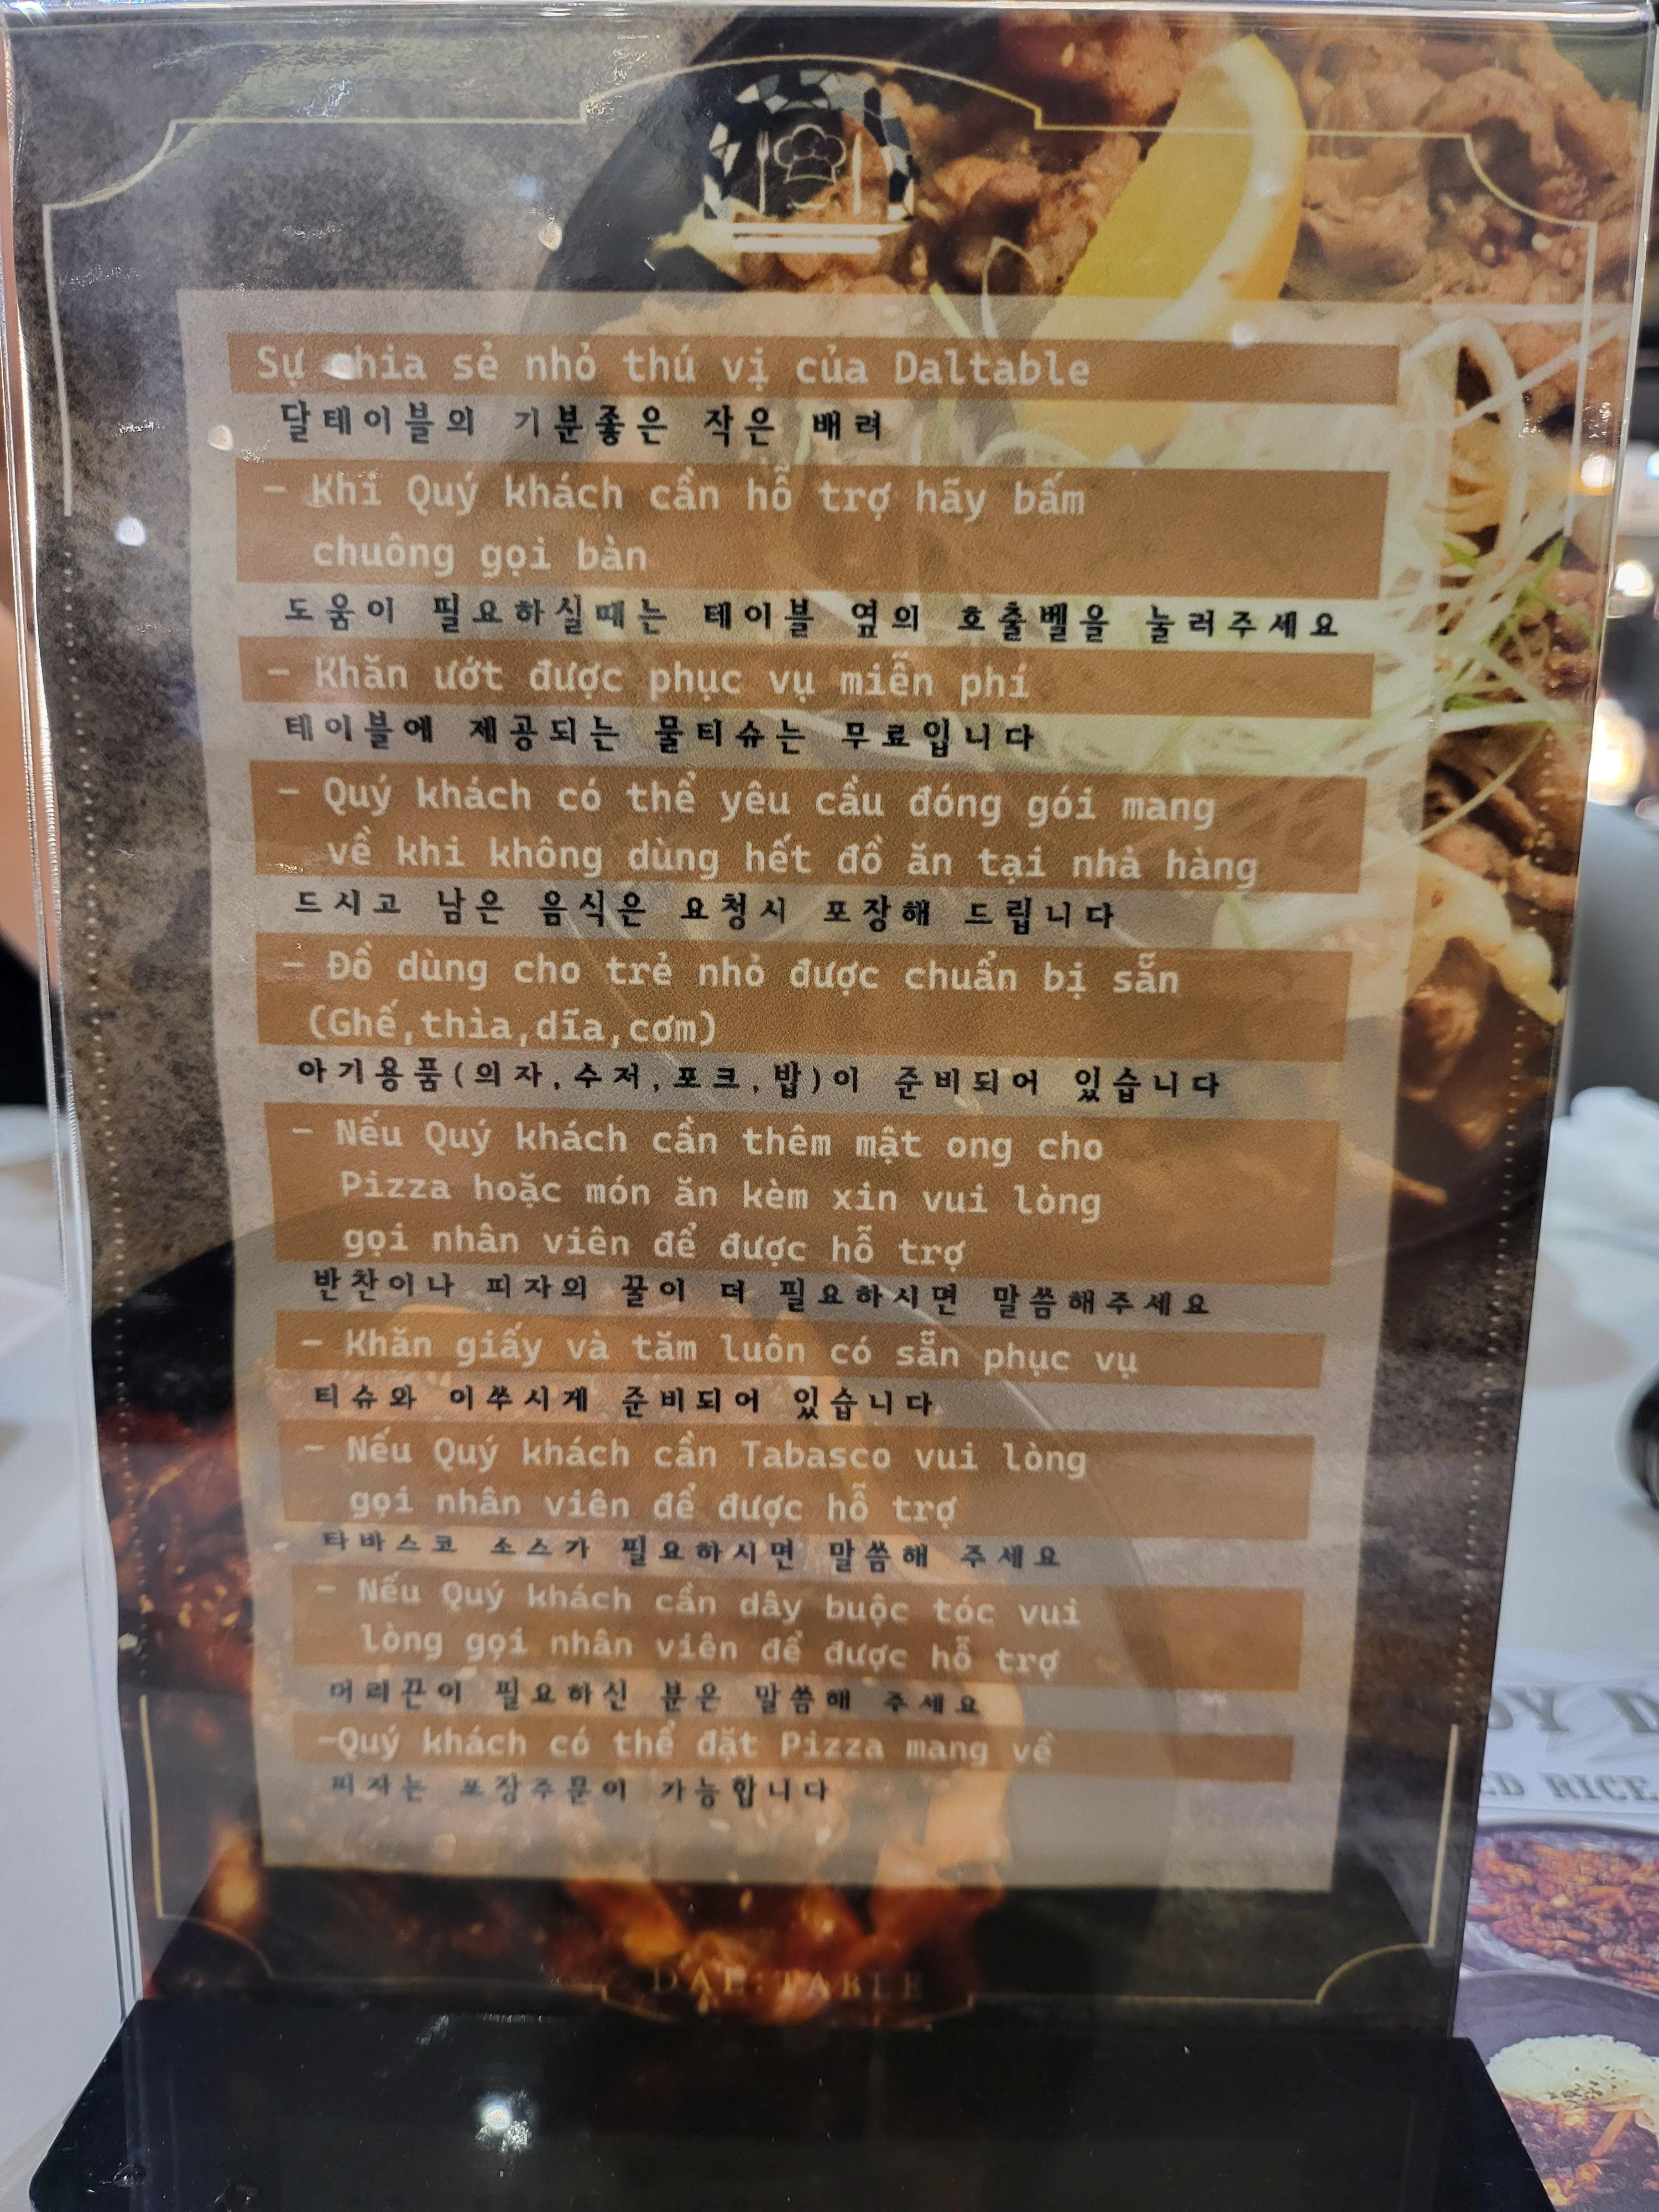 Sự chia sẻ nhỏ thú vị của Daltable
달테이블의 기분좋은 작은 배려
- Khi Quý khách cần hỗ trợ hãy bấm
chuông gọi bàn
도움이 필요하실때는 테이블 옆의 호출벨을 눌러주세요
- Khăn ướt được phục vụ miễn phí
테이블에 제공되는 물티슈는 무료입니다
- Quý khách có thể yêu cầu đóng gói mang
về khi không dùng hết đồ ăn tại nhà hàng
드시고 남은 음식은 요청시 포장해 드립니다
- Đồ dùng cho trẻ nhỏ được chuẩn bị sẵn
(Ghế,thìa,dĩa,cơm)
아기용품(의자,수저,포크,밥)이 준비되어 있습니다
- Nếu Quý khách cần thêm mật ong cho
Pizza hoặc món ăn kèm xin vui lòng
gọi nhân viên để được hỗ trợ
반찬이나 피자의 꿀이 더 필요하시면 말씀해주세요
- Khăn giấy và tăm luôn có sẵn phục vụ
티슈와 이쑤시게 준비되어 있습니다
- Nếu Quý khách cần Tabasco vui lòng
gọi nhân viên để được hỗ trợ
타바스코 소스가 필요하시면 말씀해 주세요
- Nếu Quý khách cần dây buộc tóc vui
lòng gọi nhân viên để được hỗ trợ
머리끈이 필요하신 분은 말씀해 주세요
-Quý khách có thể đặt Pizza mang về
피자는 포장주문이 가능합니다
DAL:TABLE
RICE